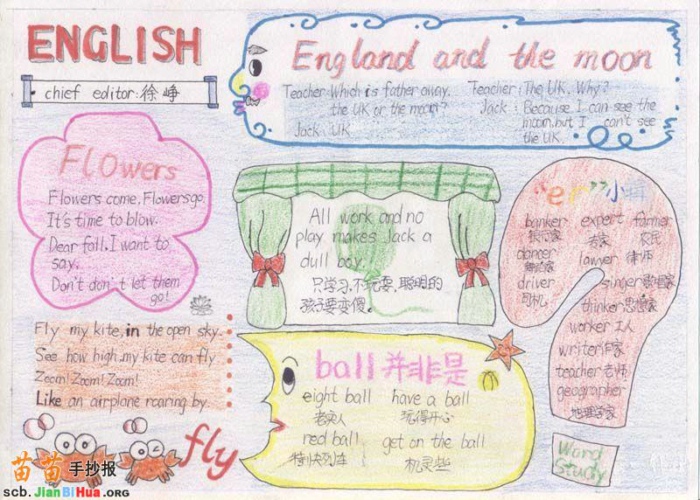 ENGLISH
chief editor:徐峥
England and the moon
Teacher:Which is father away,
the UK or the moon?
Jack: UK
Teacher:The UK. Why?
Jack: Because I can see the
moon,but I can't see
the UK.
Flowers
Flowers come, Flowers go,
It's time to blow.
Dear fall, I want to
say.
Don't don't let them
go!
All work and no
play makes Jack a
dull boy.
只学习,不玩耍,聪明的
孩子要变傻。
"er"小
banker expert farmer
银行家 专家 农民
dancer lawyer 律师
舞蹈家
driver singer歌唱家
司机 thinker思想家
worker工人
writer作家
teacher老师
geographer
地理学家
Word
Study
Fly my kite,in the open sky.
See how high,my kite can fly
Zoom! Zoom! Zoom!
Like an airplane roaring by.
fly
ball并非是
eight ball have a ball
老实人 玩得开心
red ball get on the ball
特快列车 机灵些
苗苗手抄报
scb.JianBiHua.ORG